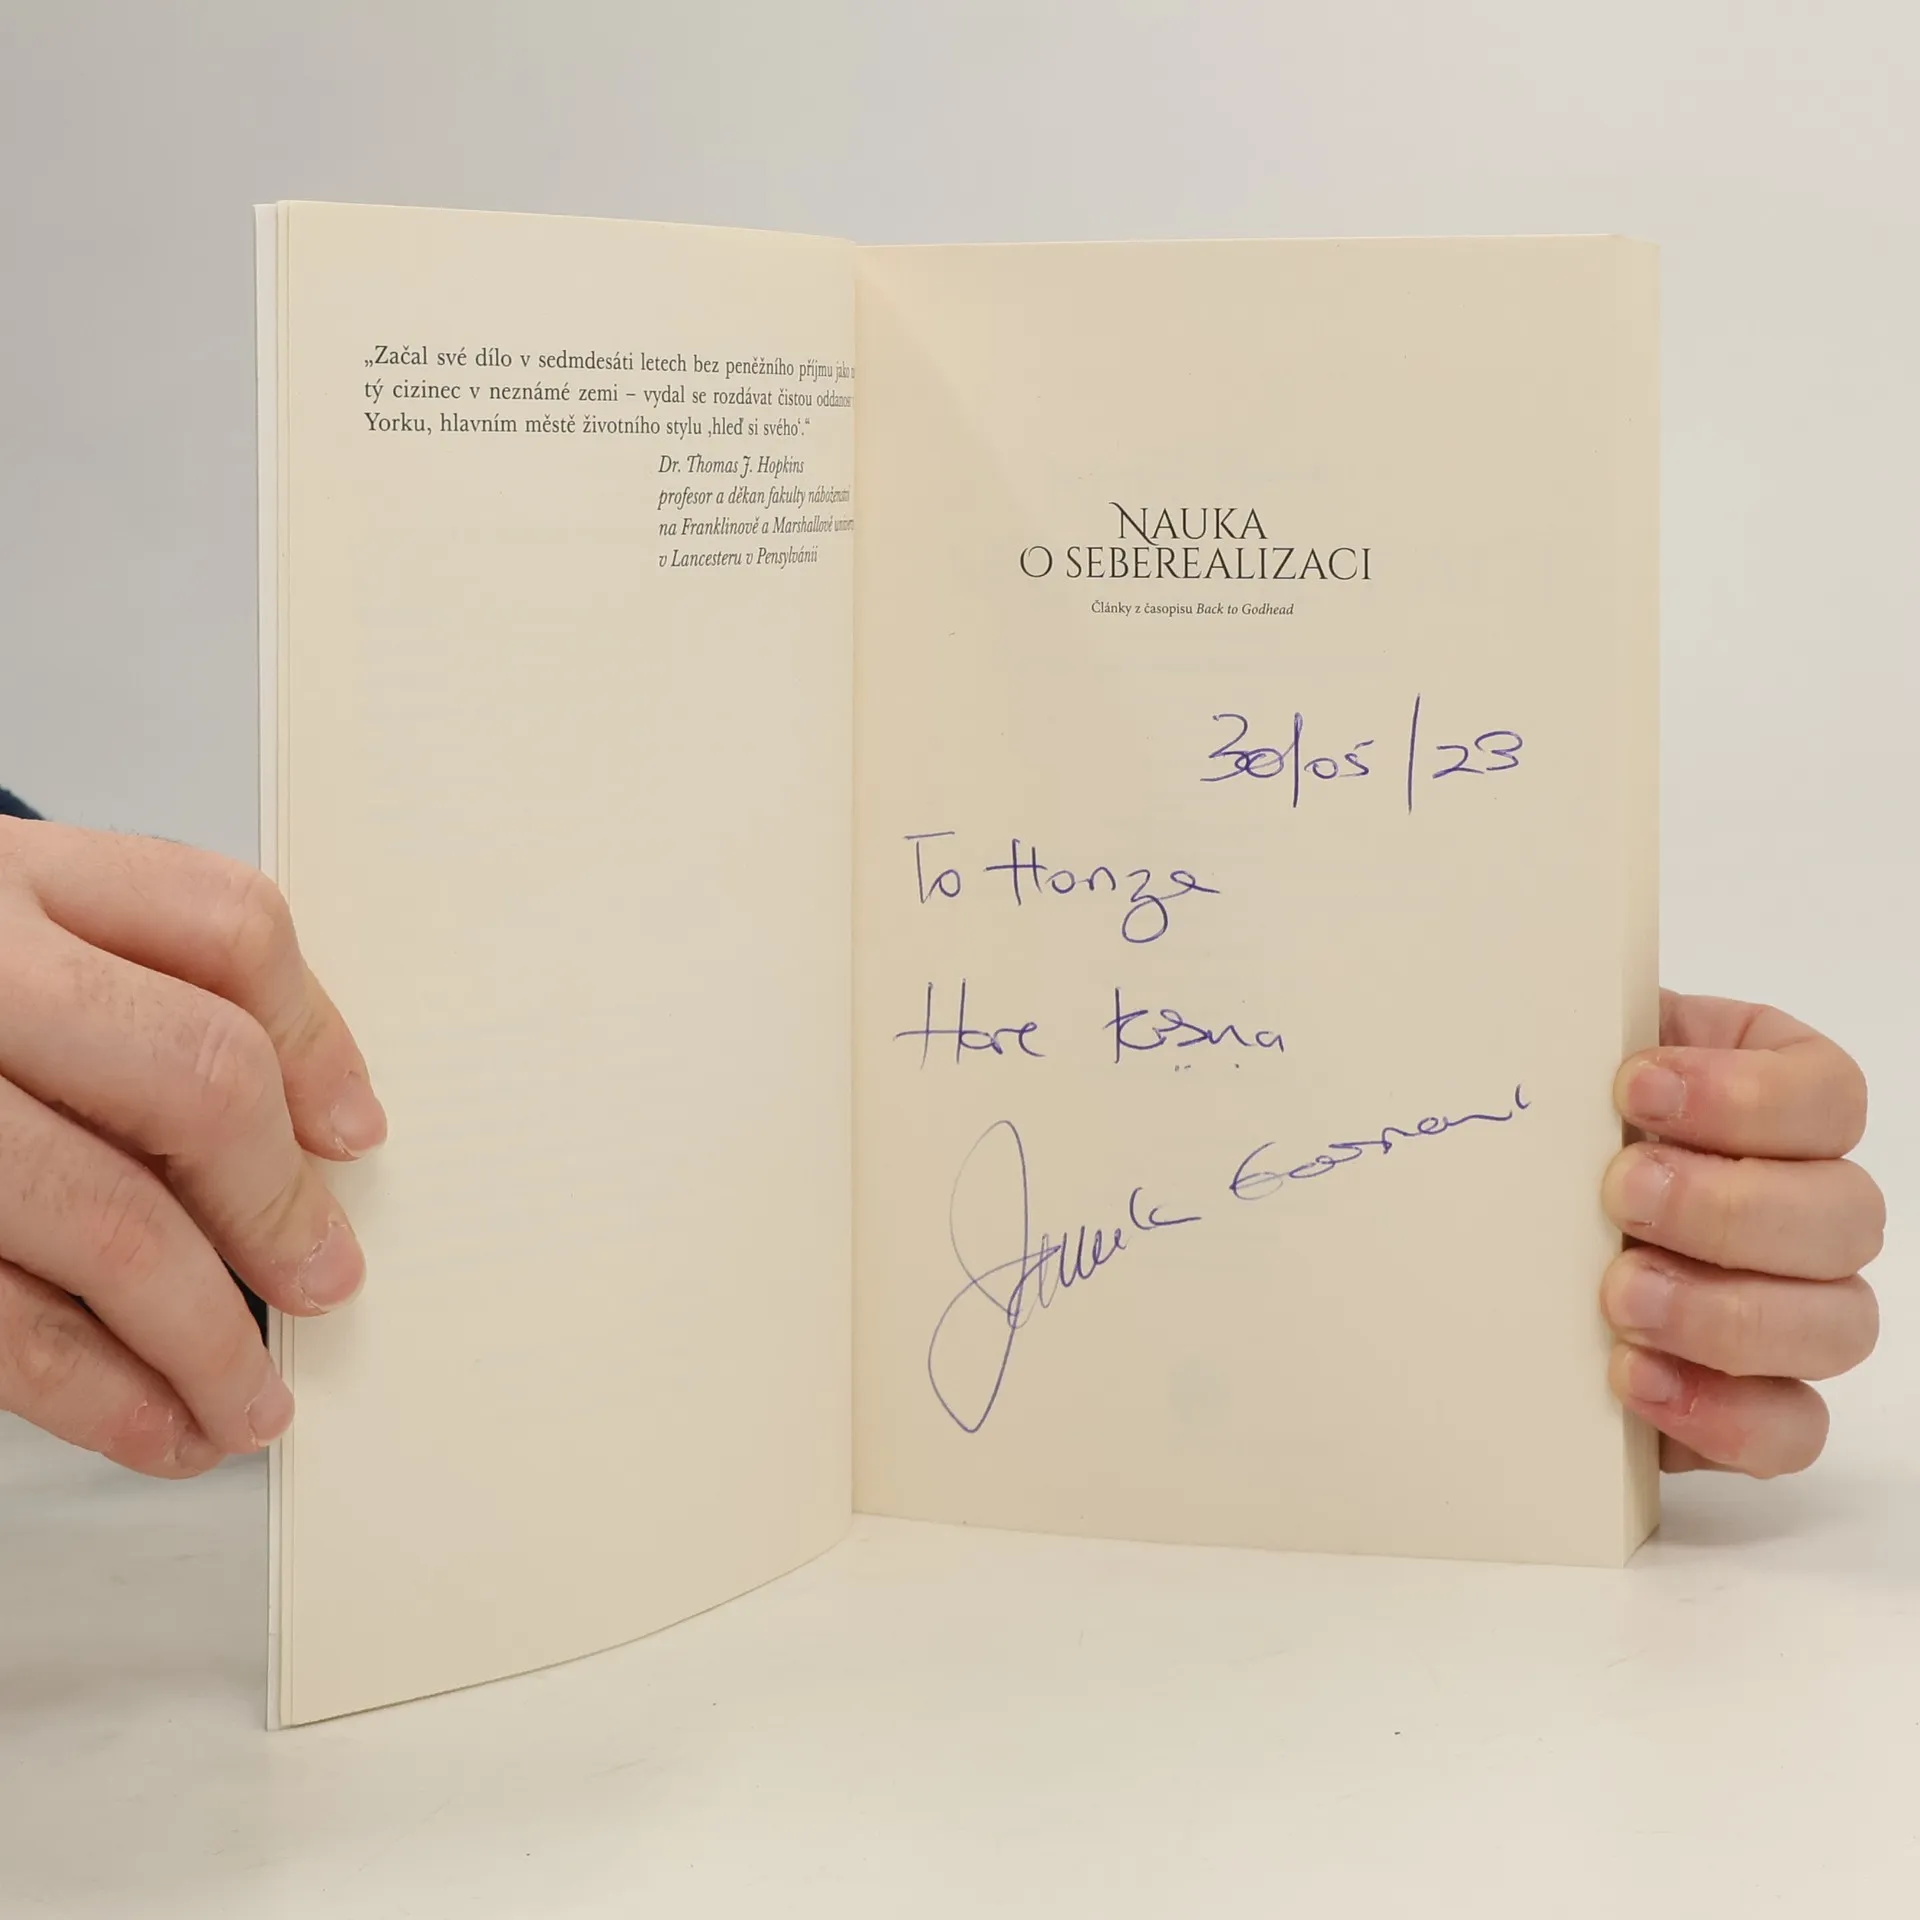 „Začal své dílo v sedmdesáti letech bez peněžního příjmu jako
tý cizinec v neznámé zemi – vydal se rozdávat čistou
Yorku, hlavním městě životního stylu ‚hleď si svého‘.“
Dr. Thomas J. Hopkins
profesor a děkan fakulty náboženství
na Franklinově a Marshallově
v Lancesteru v Pensylvánii
NAUKA
O SEBEREALIZACI
Články z časopisu Back to Godhead
30/05/23
To Honza
Hare Kṛṣṇa
Goswami